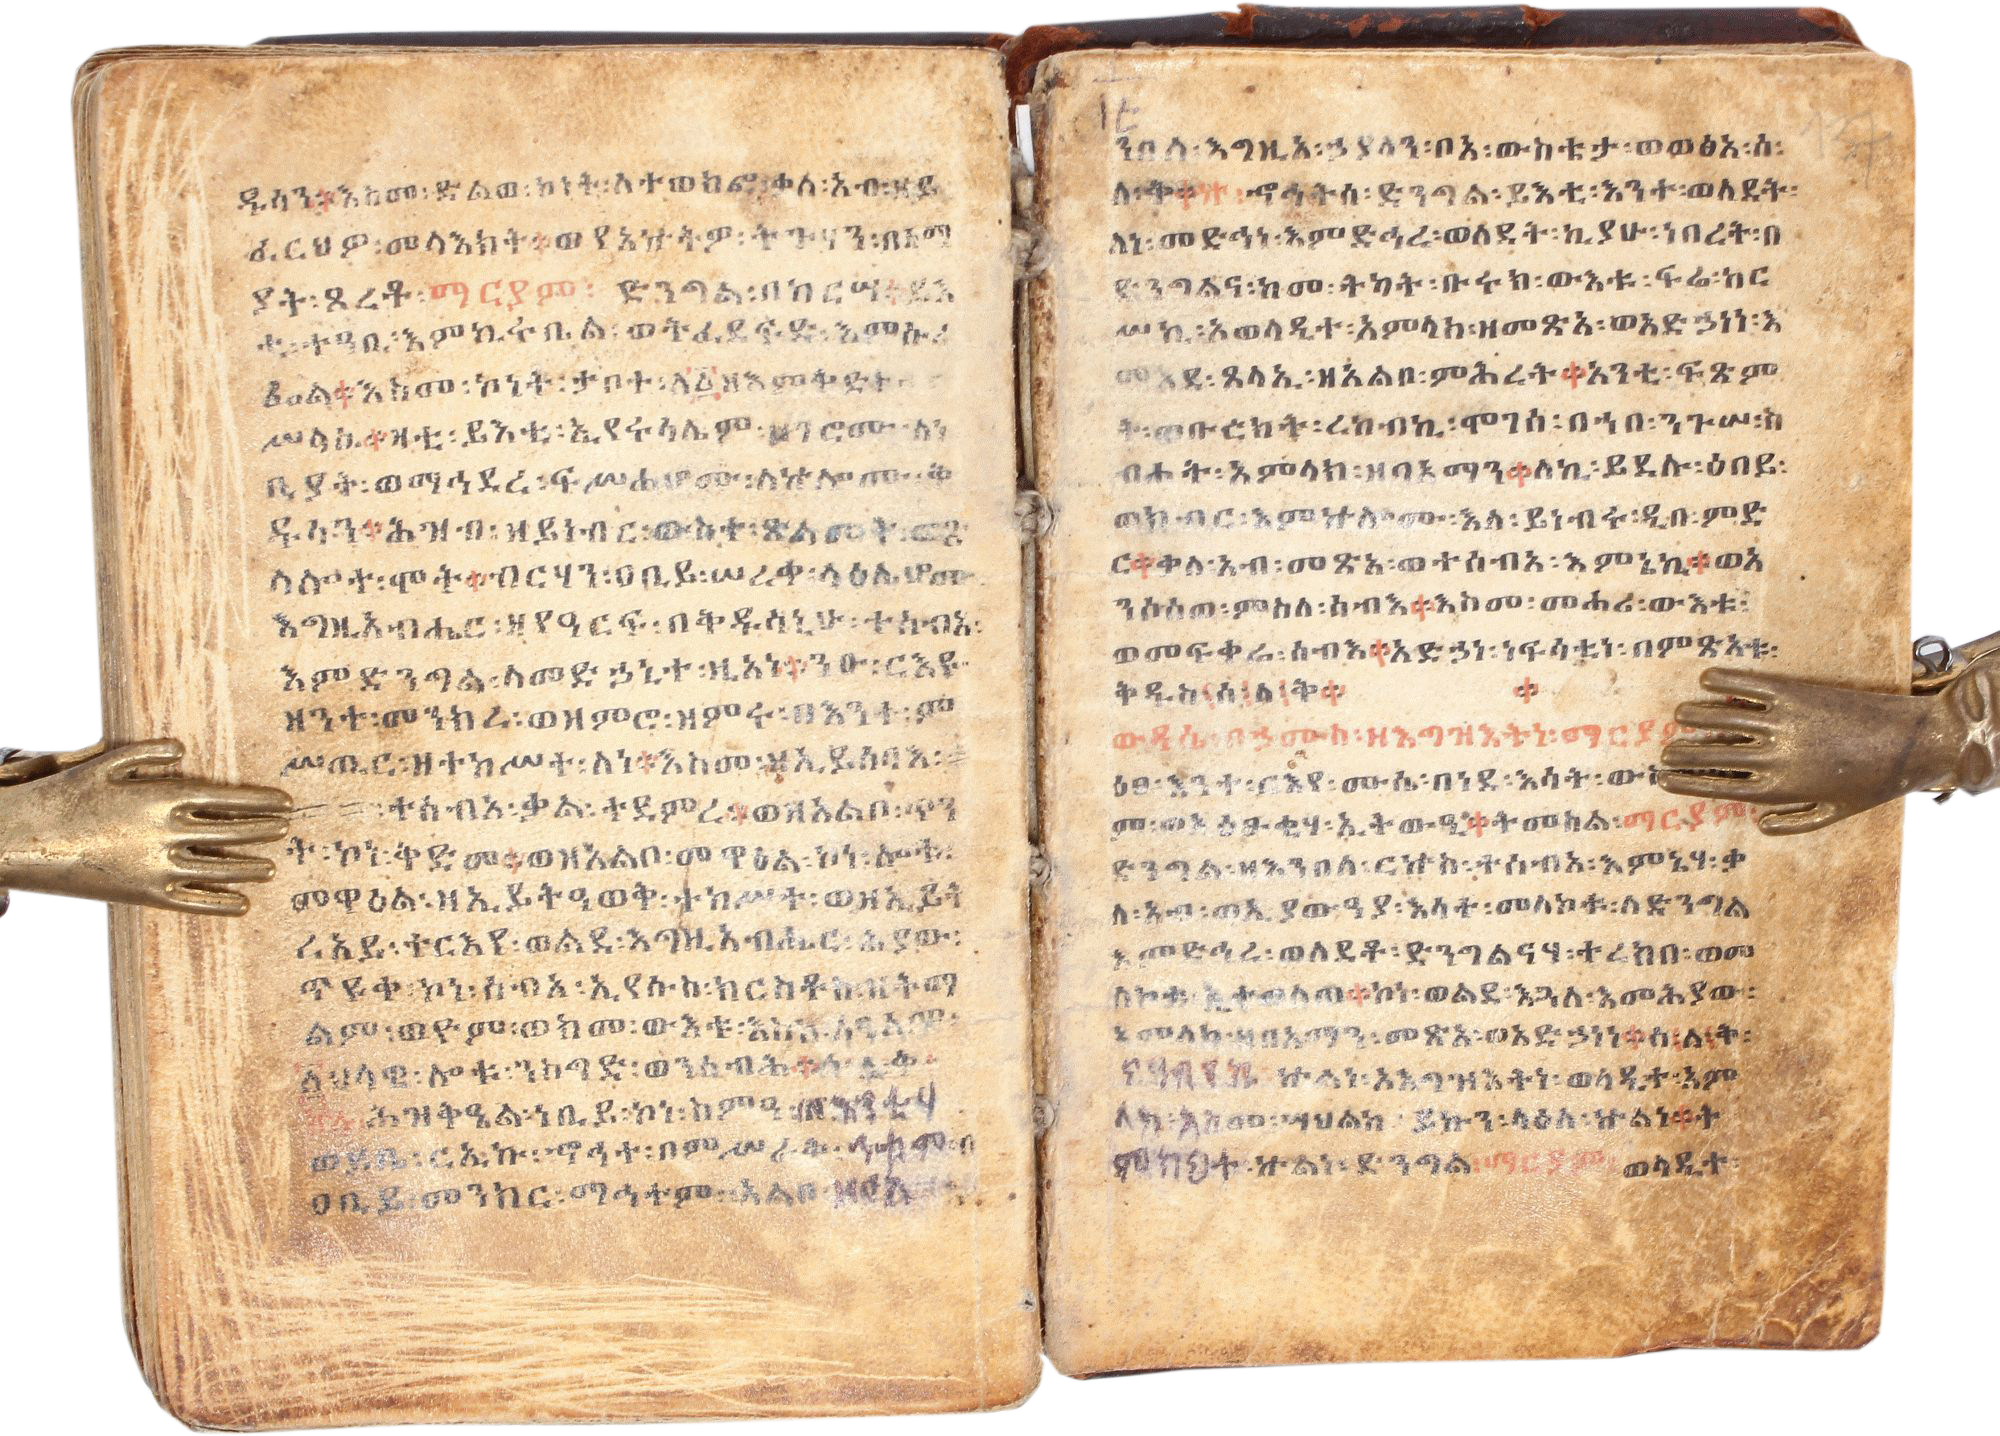 ዱሳን፨እስመ፡ድልው፡ኮነት፡ለተወክፎ፡ቃለ፡አብ፡ዘይ
ፈርህዎ፡መላእክት፨ወየአኵትዎ፡ትጉሃን፡በአማ
ያት፡ጾረቶ፡ማርያም፡ ድንግል፡በከርሣ፨ይእ
ቲ፡ተዓቢ፡እምኪሩቤል፡ወትፈደፍድ፡እምሱራ
ፌል፨እስመ፡ኮነት፡ታቦተ፡ለ፩ዘእምቅድት
ሥላሴ፨ዛቲ፡ይእቲ፡ኢየሩሳሌም፡ሀገሮሙ፡ለነ
ቢያት፡ወማኅደረ፡ፍሥሐሆሙ፡ለኵሎሙ፡ቅ
ዱሳን፨ሕዝብ፡ዘይነብር፡ውስተ፡ጽልመት፡ወጽ
ላሎተ፡ሞት፨ብርሃን፡ዐቢይ፡ሠረቀ፡ላዕሌሆሙ፡
እግዚአብሔር፡ዘየዓርፍ፡በቅዱሳኒሁ፡ተሰብአ፡
እምድንግል፡ለመድኃኒተ፡ዚአነ፨ንዑ፡ርእዩ
ዘንተ፡መንክረ፡ወዘምሮ፡ዘምሩ፡በእንተ፡ም
ሥጢር፡ዘተከሥተ፡ለነ፨እስመ፡ዘኢይሰባእ፡
ተሰብአ፡ቃል፡ተደምረ፨ወዘአልቦ፡ጥን
ት፡ኮነ፡ቅድመ፨ወዘአልቦ፡መዋዕል፡ኮነ፡ሎቱ፡
መዋዕል፡ዘኢይትዓወቅ፡ተከሥተ፡ወዘኢይት
ረአይ፡ተርእየ፡ወልደ፡እግዚአብሔር፡ሕያው፡
ጥዩቀ፡ኮነ፡ሰብአ፡ኢየሱስ፡ክርስቶስ፡ዘትማ
ልም፡ወዮም፡ወክመ፡ውእቱ፡
ሎቱ፡ንስግድ፡ወንሰብሕ፨
ሕዝቅዔል፡ነቢይ፡ኮነ፡ስምዓ፡በእንቲሃ
ወይቤ፡ርኢኩ፡ኆኅተ፡በምሥራቅ፡
ዐቢይ፡መንክር፡ማኅተም፡አልቦ፡ዘቦአ
ንበለ፡እግዚአ፡ኃያላን፡ቦአ፡ውስቴታ፡ወወፅአ፡ስ፡
ለ፡ቅ፨ ኆኅትሰ፡ድንግል፡ይእቲ፡እንተ፡ወለደት፡
ለነ፡መድኅነ፡እምድኅረ፡ወለደት፡ኪያሁ፡ነበረት፡በ
ድንግልና፡ከመ፡ትካት፡ቡሩክ፡ውእቱ፡ፍሬ፡ከር
ሥኪ፡ኦወላዲተ፡አምላክ፡ዘመጽአ፡ወአድኃነነ፡እ
መእደ፡ጸላኢ፡ዘአልቦ፡ምሕረት፨አንቲ፡ፍጽም
ት፡ወቡርክት፡ረከብኪ፡ሞገሰ፡በኀበ፡ንጉሠ፡ስ
ብሐት፡አምላክ፡ዘበአማን፨ለኪ፡ይደሉ፡ዕበይ፡
ወክብር፡እምኵሎሙ፡እለ፡ይነብሩ፡ዲበ፡ምድ
ር፨ቃለ፡አብ፡መጽአ፡ወተሰብአ፡እምኔኪ፨ወአ
ንሶሰወ፡ምስለ፡ሰብእ፨እስመ፡መሐሪ፡ውእቱ፡
ወመፍቀሬ፡ሰብእ፨አድኃነ፡ነፍሳቲነ፡በምጽአቱ፡
ቅዱስ፡ሰ፡ለ፡ቅ፨ ፨
ውዳሴ፡በኃሙስ፡ዘእግዝእትነ፡ማርያም
ዕፀ፡እንተ፡ርእየ፡ሙሴ፡በነደ፡እሳት፡
ም፡ወአዕፁቂሃ፡ኢትውዒ፨ትመስል፡ማርያም፡
ድንግል፡ዘእንበለ፡ርኵስ፡ተሰብአ፡እምኔሃ፡ቃ
ለ፡አብ፡ወኢያውዓያ፡እሳተ፡መለኮቱ፡ለድንግል
እምድኅረ፡ወለደቶ፡ድንግልናሃ፡ተረክበ፡ወመ
ለኮቱ፡ኢተወለጠ፨ኮነ፡ወልደ፡እጓለ፡እመሕያው፡
አምላክ፡ዘበአማን፡መጽአ፡ወአድኃነነ፨ሰ፡ለ፡ቅ፡
ናዓብየኪ ኵልነ፡ኦእግዝእትነ፡ወላዲተ፡አም
ላክ፡እስመ፡ሣህልኪ ይኩን፡ላዕለ፡ኵልነ፨ት
ምክህተ፡ኵልነ፡ድንግል፡ማርያም፡ ወላዲተ፡